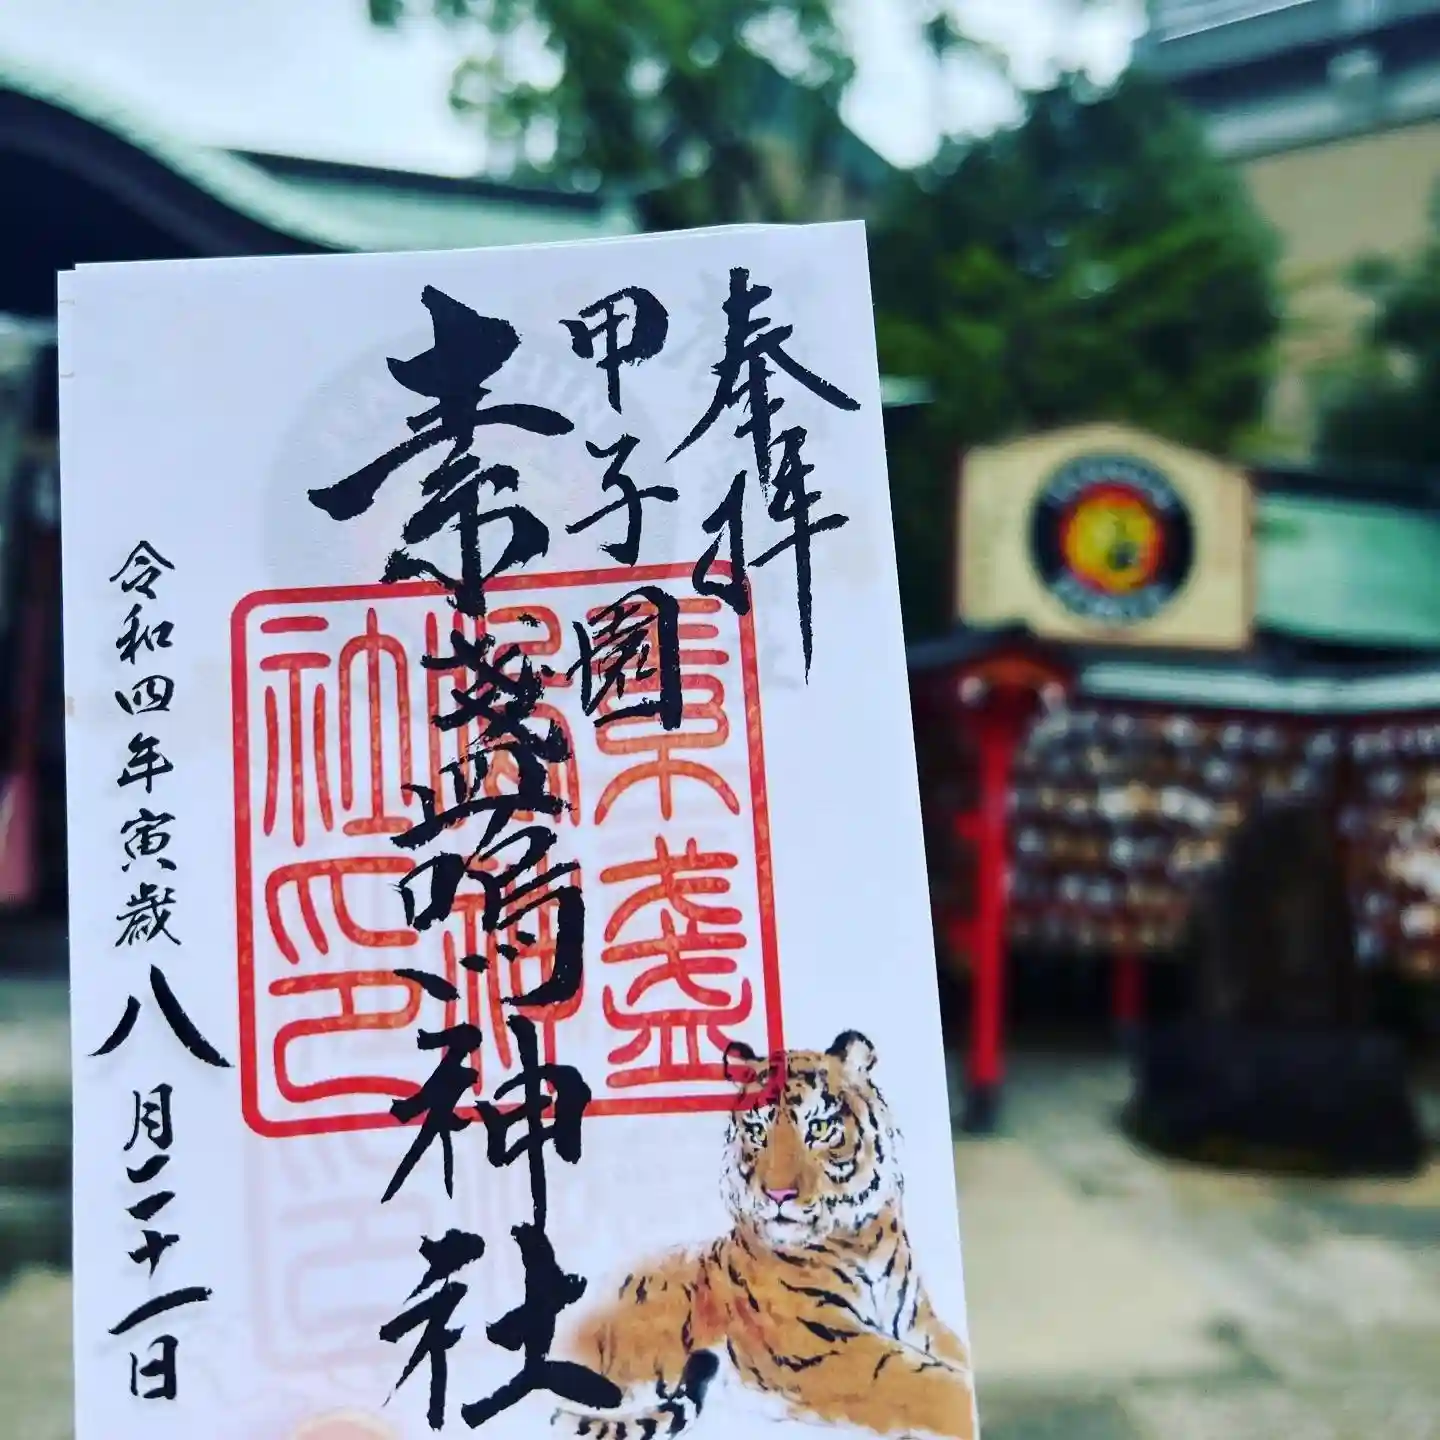 奉拝
甲子園
素盞嗚神社
令和四年寅歳八月二十一日
素盞
嗚神
社印